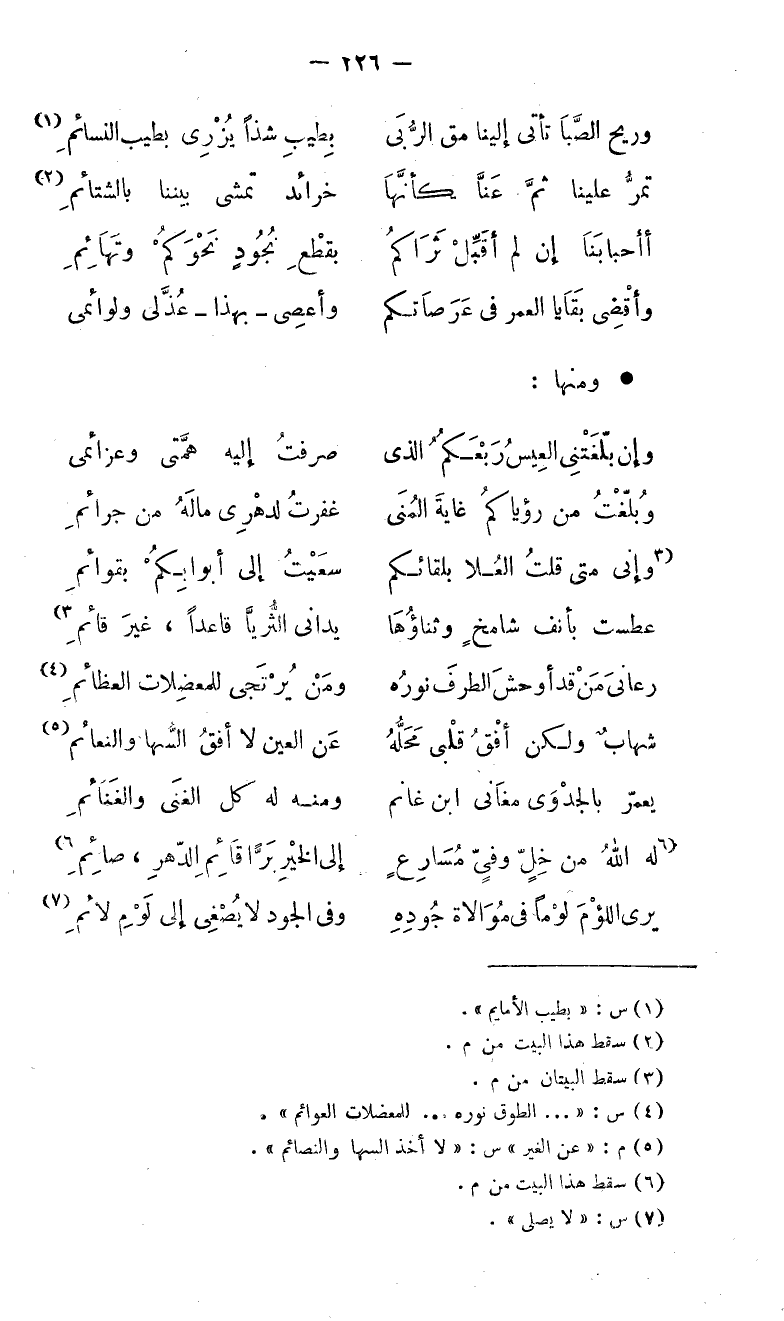 — ٢٢٦ —
وريح الصَّبَا تأتى إلينا مق الرُّبَى بِطِيبِ شذاً يُزْرِى بطيب النسائمِ (١)
تمرُّ علينا ثمَّ عَنَّا كأنَّهَا خرائد تمشى بيننا بالشتائمِ (٢)
أأحبابَنَا إن لم أقَبِّلْ ثَرَاكمُ بقطْعِ نُجُودٍ نَحْوَكمُ وتهَائِمِ
وأقْضِى بَقَايا العمر فى عَرَصاتكم وأعصِى ـ بهذا ـ عُذَّلى ولوائمى
● ومنها :
وإن بلّغَتْنِى العِيسُ رَبْعَكمُ الذى صرفتُ إليه همَّتى وعزائمى
وبُلّغْتُ من رؤياكمُ غايةَ المُنَى غفرتُ لدهْرِى مالَهُ من جرائمِ
(٣ وإنى متى قلتُ العُلا بلقائكم سعَيْتُ إلى أبوابكمُ بقوائمِ
عطست بأنف شامخٍ وثناؤُهَا يدانى الثُّريَّا قاعداً ، غيرَ قائمِ ٣)
رعانىَ مَنْ قد أوحش الطرفَ نورُه ومَنْ يُرْتَجى للمعضِلات العظائمِ (٤)
شهابٌ ولكن أفْقُ قلْبى مَحَلُّهُ عَن العين لا أفقُ السُّها والنعائم (٥)
يعمرّ بالجدْوَى مغانى ابن غانم ومنه له كل الغنَى والغَنَائمِ
(٦ له اللهُ من خِلّ وفيّ مُسَارِعٍ إلى الخيْرِ بَرًّا قَائِم الدّهرِ ، صائِمِ ٦)
يرى اللؤمَ لوْماً فى مُوَالاة جُودِهِ وفى الجود لا يُصْغِى إلى لَوْمِ لائمِ (٧)
(١) س : « بطيب الأمايم » .
(٢) سقط هذا البيت من م .
(٣) سقط البيتان من م .
(٤) س : « ... الطوق نوره ... للمعضلات العوائم » .
(٥) م : « عن الغير » س : « لا أخذ السها والنصائم » .
(٦) سقط هذا البيت من م .
(٧) س : « لا يصلى » .